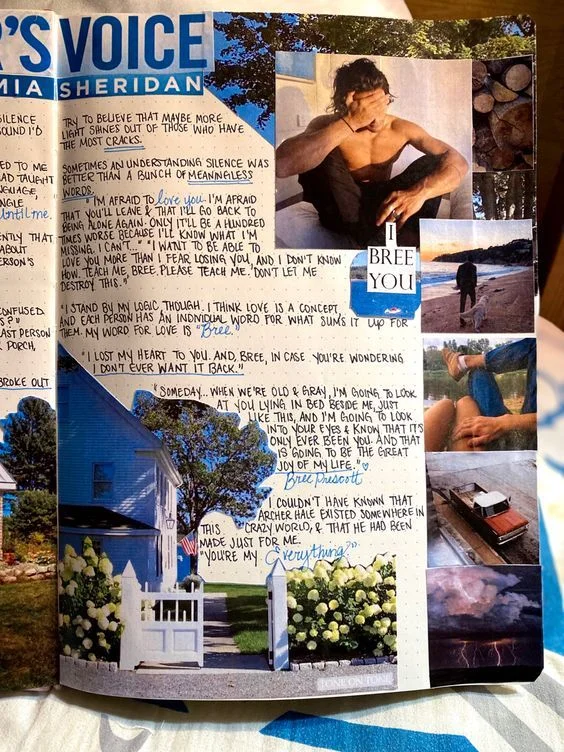 R'S VOICE
MIA SHERIDAN
SILENCE
SOUND I'D
ED TO ME
AD TAUGHT
NGUAGE,
NGLE
until me.
ENTLY THAT
ABOUT
ERSON'S
CONFUSED
S?"
LAST PERSON
PORCH,
BROKE OUT
TRY TO BELIEVE THAT MAYBE MORE
LIGHT SHINES OUT OF THOSE WHO HAVE
THE MOST CRACKS.
SOMETIMES AN UNDERSTANDING SILENCE WAS
BETTER THAN A BUNCH OF MEANINGLESS
WORDS.
"I'M AFRAID TO love you. I'M AFRAID
THAT YOU'LL LEAVE & THAT I'LL GO BACK TO
BEING ALONE AGAIN. ONLY IT'LL BE HUNDRED
TIMES WORSE BECAUSE I'LL KNOW WHAT I'M
MISSING. I CAN'T..." "I WANT TO BE ABLE TO
LOVE YOU MORE THAN I FEAR LOSING YOU, AND I DON'T KNOW
HOW. TEACH ME, BREE. PLEASE TEACH ME. DON'T LET ME
DESTROY THIS."
I
BREE
YOU
"I STAND BY MY LOGIC, THOUGH. I THINK LOVE IS A CONCEPT,
AND EACH PERSON HAS AN INDIVIDUAL WORD FOR WHAT SUMS IT UP FOR
THEM. MY WORD FOR LOVE IS "Bree."
"I LOST MY HEART TO YOU. AND, BREE, IN CASE YOU'RE WONDERING
I DON'T EVER WANT IT BACK."
"SOMEDAY... WHEN WE'RE OLD & GRAY, I'M GOING TO LOOK
AT YOU LYING IN BED BESIDE ME, JUST
LIKE THIS, AND I'M GOING TO LOOK
INTO YOUR EYES & KNOW THAT IT'S
ONLY EVER BEEN YOU. AND THAT
IS GOING TO BE THE GREAT
JOY OF MY LIFE."
Bree Prescott
I COULDN'T HAVE KNOWN THAT
ARCHER HALE EXISTED SOMEWHERE IN
THIS CRAZY WORLD, & THAT HE HAD BEEN
MADE JUST FOR ME.
"YOU'RE MY Everything?"
TONE ON TONE